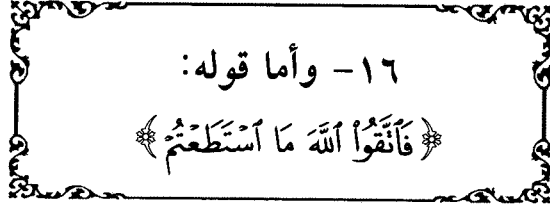 ١٦- وأما قوله:
﴿فَٱتَّقُوا۟ ٱللَّهَ مَا ٱسْتَطَعْتُمْ﴾